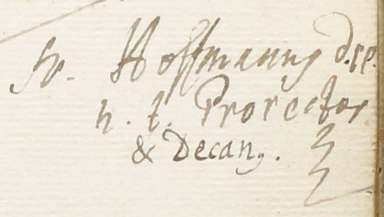 Fr. Hoffmanny D. pp.
h. t. Prorector
& Decany.